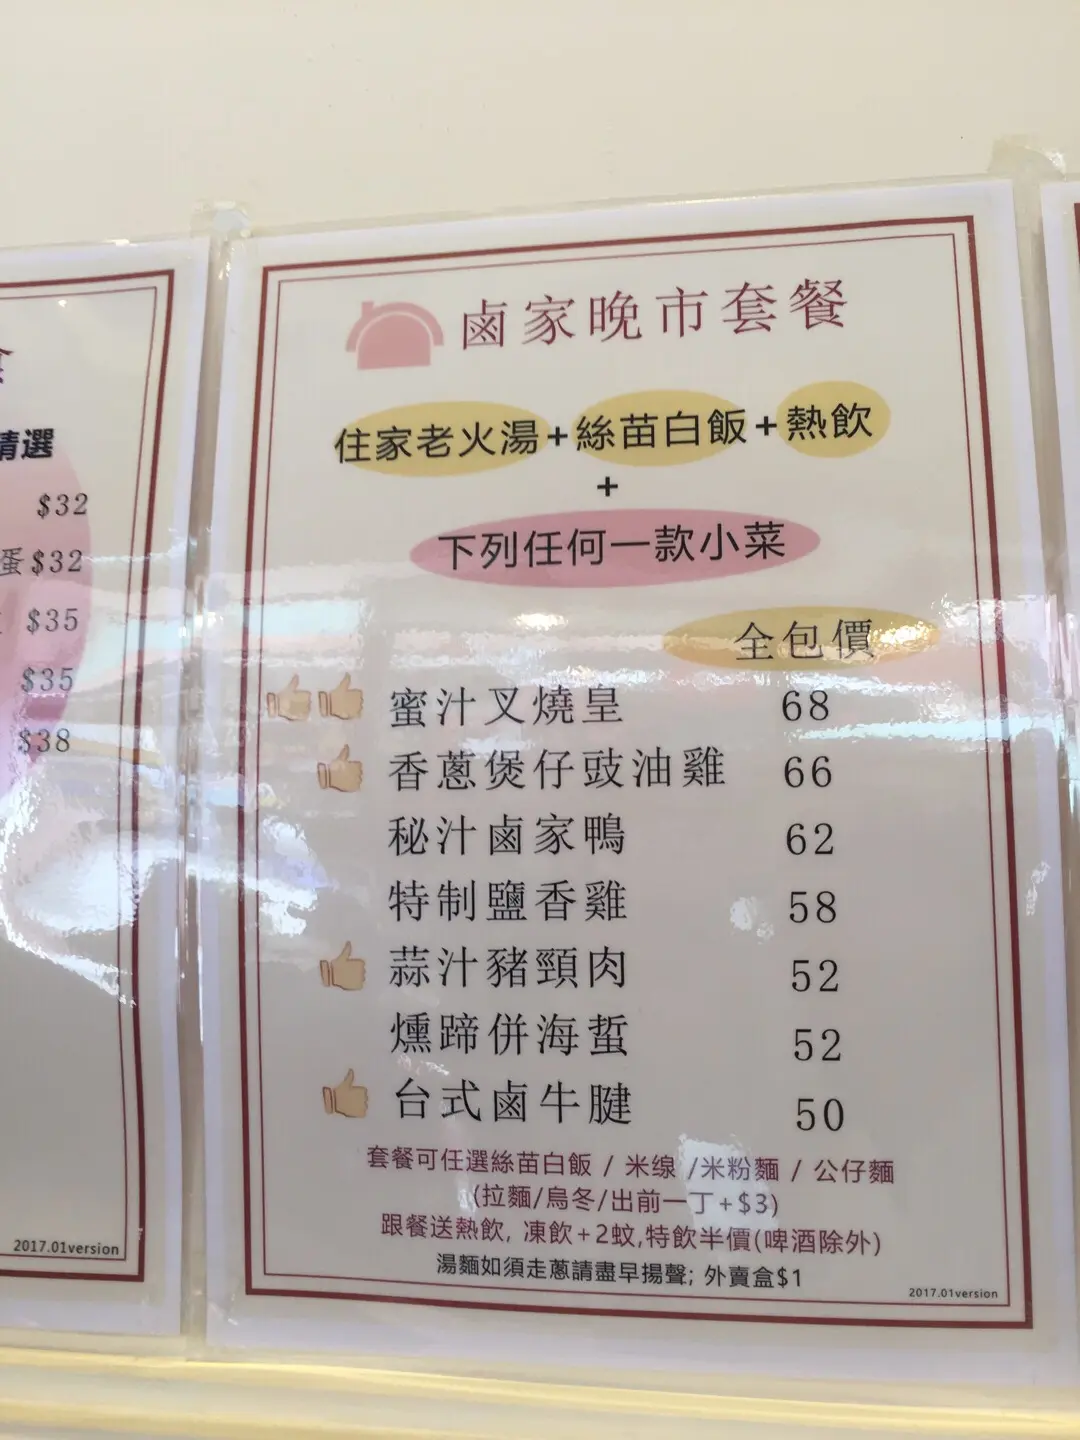 精選
$32
蛋 $32
$35
$35
$38
2017.01version
鹵家晚市套餐
住家老火湯+絲苗白飯+熱飲
+
下列任何一款小菜
全包價
蜜汁叉燒皇 68
香蔥煲仔豉油雞 66
秘汁鹵家鴨 62
特制鹽香雞 58
蒜汁豬頸肉 52
燻蹄併海蜇 52
台式鹵牛腱 50
套餐可任選絲苗白飯 / 米线 /米粉麵 / 公仔麵
(拉麵/烏冬/出前一丁+$3)
跟餐送熱飲, 凍飲+2蚊,特飲半價(啤酒除外)
湯麵如須走蔥請盡早揚聲; 外賣盒$1
2017.01version